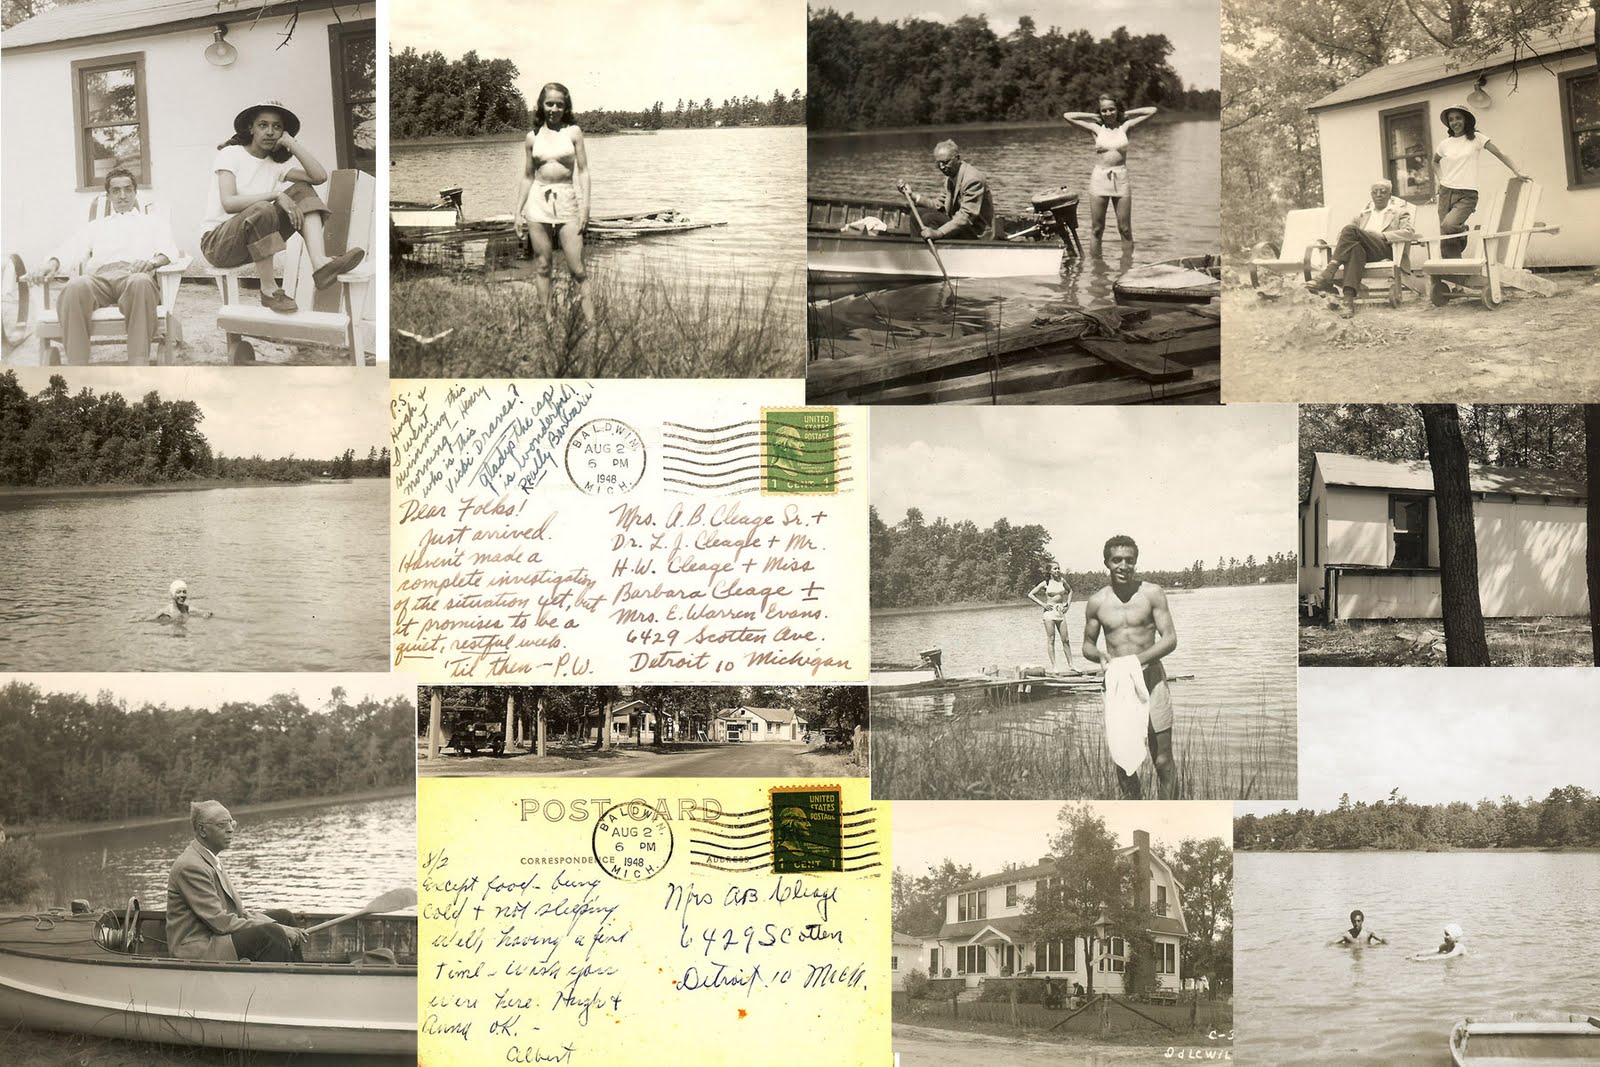 P.S.-
Hugh &
I went
swimming this
morning Henry
who is this
Vicki Dranes?
Gladys the cap
is wonderful!
Really Barbara!
BALDWIN
AUG 2
6 PM
1948
MICH.
UNITED
STATES
POSTAGE
1 CENT 1
Dear Folks!
Just arrived.
Haven't made a
complete investigation
of the situation yet, but
it promises to be a
quiet, restful week.
'til then — P.W.
Mrs. A.B. Cleage Sr. +
Dr. L.J. Cleage + Mr.
H.W. Cleage + Miss
Barbara Cleage +
Mrs. E. Warren Evans.
6429 Scotten Ave.
Detroit 10 Michigan
POST CARD
BALDWIN
AUG 2
6 PM
1948
MICH.
UNITED
STATES
POSTAGE
1 CENT 1
CORRESPONDENCE
ADDRESS
8/2
Except food - being
cold + not sleeping
well, having a fine
time - wish you
were here. Hugh &
Anna O.K. -
Albert
Mrs AB. Cleage
6429 Scotten
Detroit. 10 Mich.
C-3
IdLEWIL